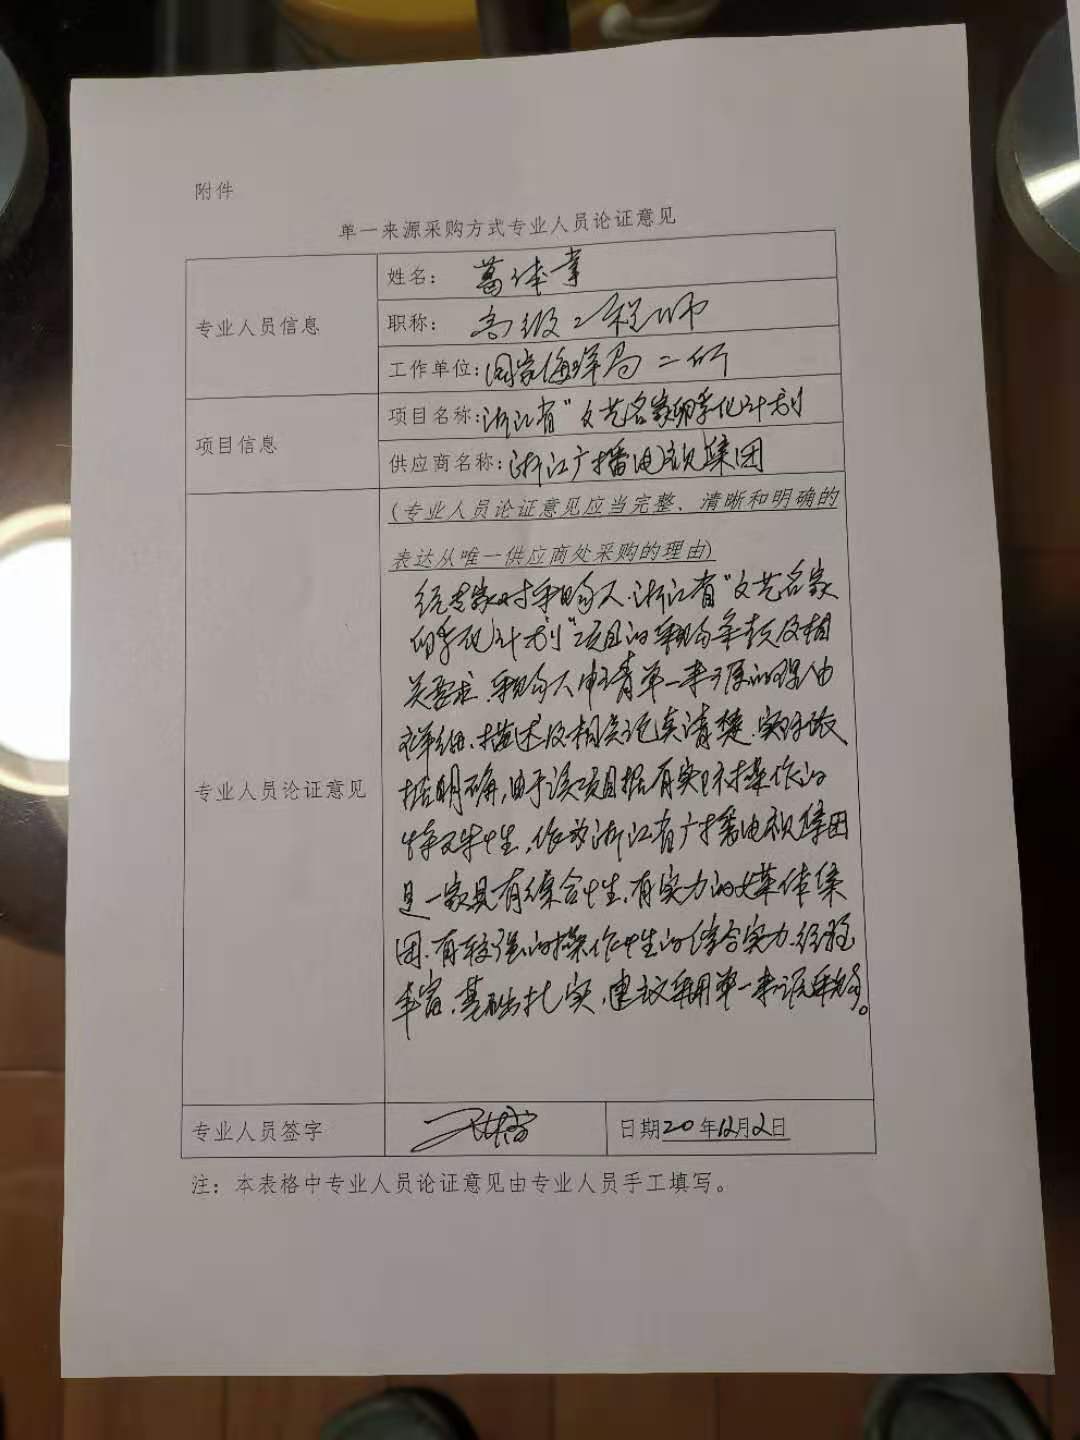 附件
单一来源采购方式专业人员论证意见
专业人员信息
姓名：
职称： 高级工程师
工作单位：国家海洋局二所
项目信息
项目名称：浙江省“文艺名家孵化计划
供应商名称：浙江广播电视集团
专业人员论证意见
(专业人员论证意见应当完整、清晰和明确的
表达从唯一供应商处采购的理由)
经专家对采购人.浙江省“文艺名家
孵化计划”项目的采购条款及相
关要求.采购人申请单一来源的理由
详细、描述及相关记载清楚.实际依
据明确,由于该项目据有实际操作的
特殊性,作为浙江省广播电视集团
是一家具有综合性,有实力的媒体集
团.有较强的操作性的综合实力.经验
丰富.基础扎实,建议采用单一来源采购。
专业人员签字
日期20年12月2日
注：本表格中专业人员论证意见由专业人员手工填写。